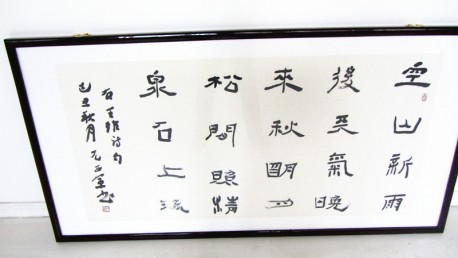 空山新雨
後天氣晚
來秋明月
松間照清
泉石上流
右王維詩句
己丑秋月